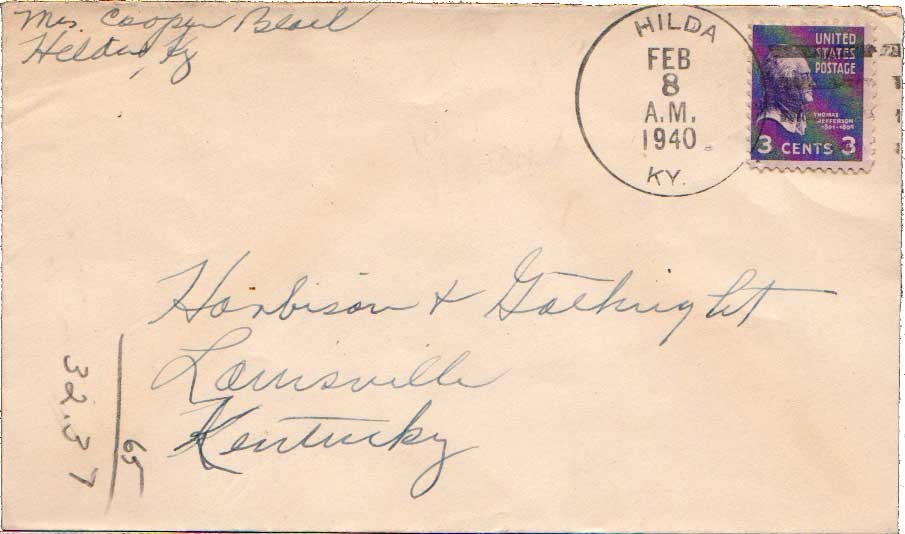 Mrs. Cooper Black
Hilda, Ky
HILDA
FEB
8
A.M.
1940
KY.
UNITED
STATES
POSTAGE
THOMAS
JEFFERSON
1801-1809
3 CENTS 3
Harbison & Gathright
Louisville
Kentucky
65
32.37